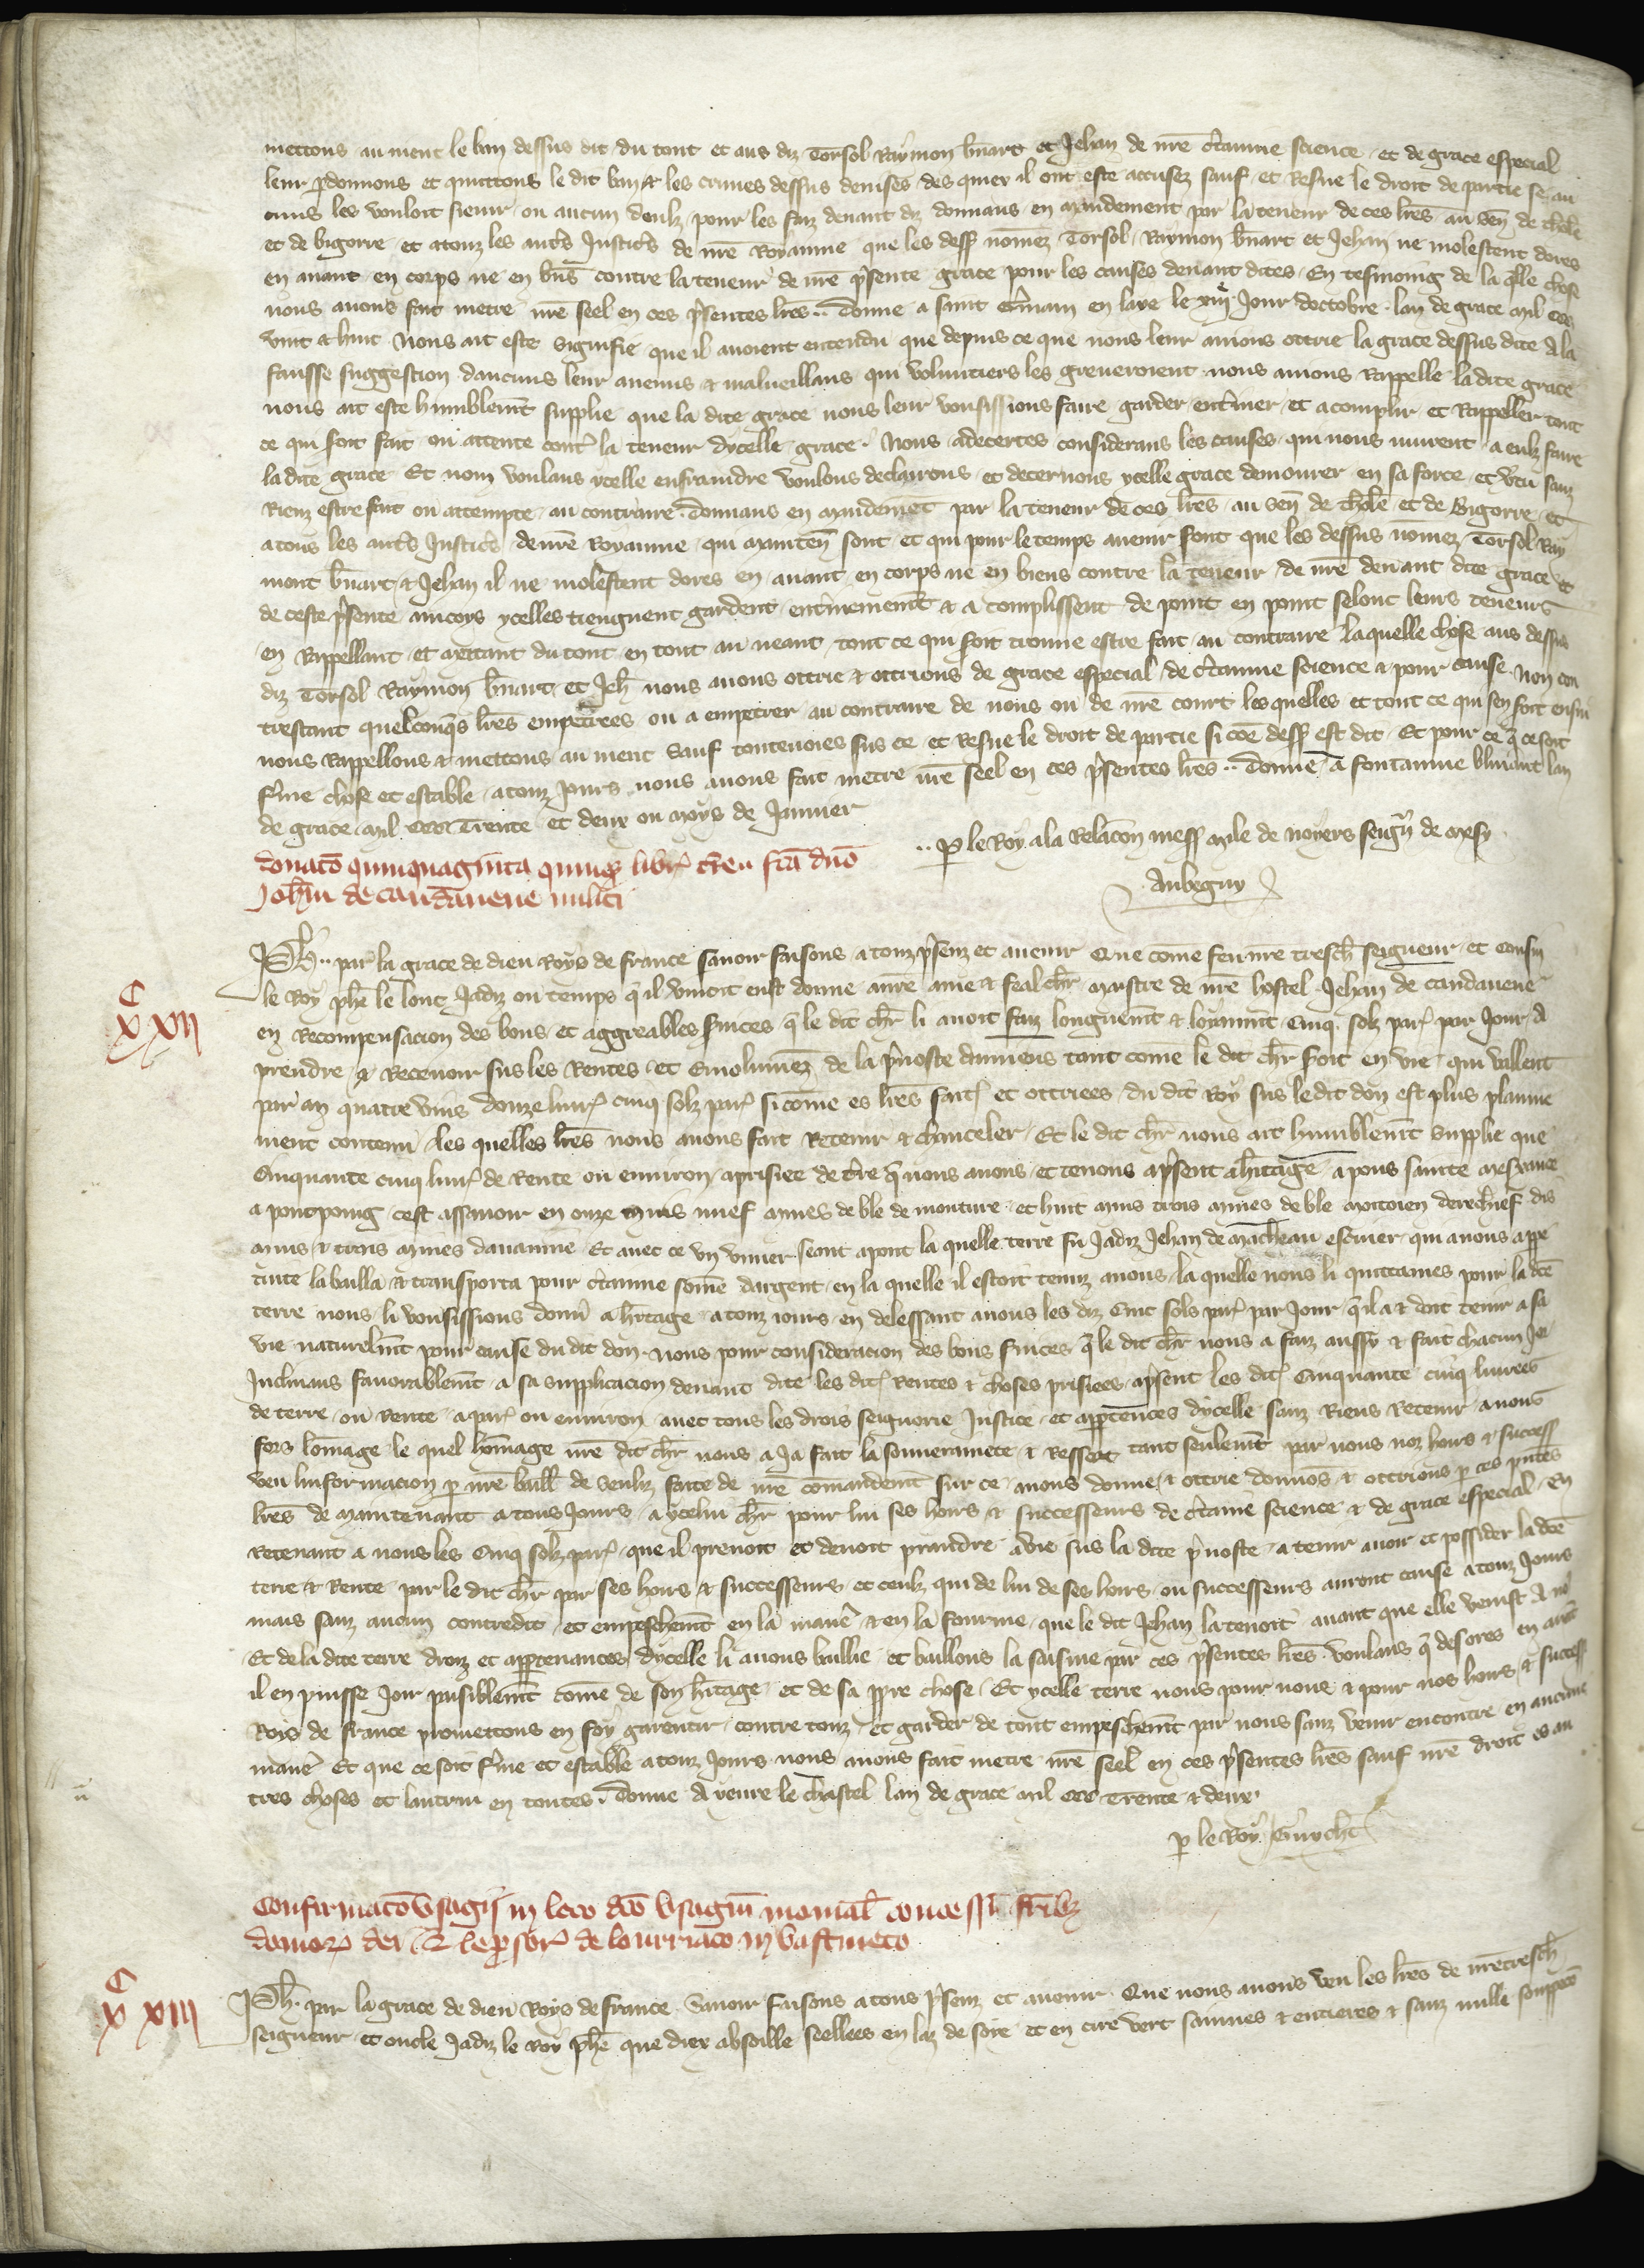 mettons au nient le ban dessus dit du tout et aus diz Torsol Raymon bnart et Jehan de nre c̃taine science et de grace especial
leur p̱donnons et quittons le dit ban & les crimes dessus devises des quiex il ont este accusez sauf et Resue le droit de partie se au
cuns les vouloit sievir ou aucun deulz pour les faiz devant diz donnans en mandement par la teneur de ces lr̃es au sen̄ de thole
et de bigorre et a touz les autr̃s Justic̃s de nr̃e Royaume que les dess nōmez Torsol Raymon bn̄art et Jehan ne molestent dores
en avant en corps ne en bn̄s contre la teneur de nr̃e p̃sente grace pour les causes devant dites En tesmoing de la q̃lle chose
nous avons fait metre nr̃e seel en ces p̃sentes lr̃es Donne a saint Germain en laye le xiiije Jour doctobre lan de grace mil ccc
vint & huit Nous ait este signifie que il avoient entendu que depuis ce que nous leur avions ottrie la grace dessus dite A la
fausse suggestion daucuns leur anemis & malveillans qui volentiers les greveroient nous avions Rappelle la dite grace
nous ait este humblem̄t supplie que la dite grace nous leur vousissions faire garder ent̃iner et acomplir et Rappeller tout
ce qui soit fait ou attente cont̃ la teneur dycelle grace Nous adecertes considerans les causes qui nous murent a eulz faire
la dite grace Et nom voulans ycelle enfraindre voulons declairons et decernons ycelle grace demourer en sa force et v̄tu sanz
Riens estre fait ou attempte au contraire donnans en mandem̄t par la teneur de ces lr̃es au sen̄ de thole et de Bigorre et
a tous les autr̃s Justic̃s de nr̃e Royaume qui mainten̄ sont et qui pour le temps avenir sont que les dessus nōmez Torsol Ray
mont bn̄art & Jehan il ne molestent dores en avant en corps ne en biens contre la teneur de nr̃e devant dite grace et
de ceste p̃sente aincoys ycelles tiengnent gardent ent̃inement & acomplissent de point en point selonc leurs teneurs
en Rappellant et mettant du tout en tout au neant tout ce qui soit trouve estre fait au contraire laquelle chose aus dessus
diz Torsol Raymon bn̄art et Jeh̄ nous avons ottrie & ottrions de grace especial de c̃taine science & pour cause Non con
trestant quelconq̃s lr̃es empetrees ou a empetrer au contraire de nous ou de nr̃e court lesquelles et tout ce qui sen soit ensui
nous Rappellons & mettons au nient Sauf toutevoies sus ce et Resue le droit de partie si cōe dess est dit Et pour ce q̃ ce soit
f̃me chose et estable a touz jours nous avons fait metre nr̃e seel en ces p̃sentes lr̃es Donne a fontainne bliaut lan
de grace mil ccc Trente et deux ou moys de Janvier
p̱ le Roy a la relacōn mess mile de noyers seign̄ de mesy
Aubigny
Donatō quinquaginta quinq̨ libr̃ t̃re fc̄a dn̄o
Joh̄i de candavene militi
C
XXII
Ph̄ par la grace de dieu Roys de france savoir faisons a touz p̃senz et avenir Que cōme feu nr̃e tresch̄ seigneur et cousin
le Roy ph̄e le lonc Jadiz ou temps q̃ il vivoit eust donne a nr̃e ame & feal chr̄ maistre de nr̃e hostel Jehan de candavene
en Recompensacion des bons et aggreables s̃vices q̃ le dit chr̄ li avoit faiz longuem̄t & loyaum̄t Cinq solz par̃ par Jour A
prendre & Recevoir sus les Rentes et emolumēz de la p̃voste damiens tant cōme le dit chr̄ soit en vie qui vallent
par an quatre vins douze livr̃ cinq solz par̃ sicōme es lr̃es fait̃ et ottriees du dit Roy sus le dit don est plus plaine
ment contenu les quelles lr̃es nous avons fait Retenir & chanceler Et le dit chr̄ nous ait humblem̄t supplie que
Cinquante cinq livr̃ de Rente ou environ a prisiee de t̃re q̃ nous avons et tenons ap̃sent a h̄itage a pons sainte mexance
a pontpoing cest assavoir en onze muis nuef mines de ble de mouture et huit muis trois mines de ble moitoien derechief dis
muis & trois mines davainne Et avec ce vn vivier seant a pont la quelle terre fu Jadiz Jehan de macheau escuier qui a nous appe
tinte la bailla & transporta pour c̃taine somē dargent en la quelle il estoit tenuz a nous la quelle nous li quittames pour la dc̄e
terre nous li vousissions donn̄ a h̄itage a touz iours en delessant a nous les diz Cinc sols par̃ par Jour q̃ il a & doit tenir a sa
vie naturelm̄t pour cause du dit don Nous pour consideracion des bons s̃vices q̃ le dit chr̄ nous a faiz aussy & fait chacun Jor
Inclinans favorablem̄t a sa supplicacion devant dite les dit̃ Rentes & choses prisiees ap̃sent les dit̃ Cinquante cinq livrees
de terre ou Rente a par̃ ou environ avec tous les drois seignorie Justice et app̱ten̄ces dycelle sanz Riens Retenir a nous
fors lōmage le quel hōmage nr̃e dit chr̄ nous a Ja fait la souverainete & Ressort tant seulem̄t par nous noz hoirs & success
veu linformacion p̱ nr̃e baill de senliz faite de nr̃e cōmandemt sur ce avons donne & ottrie donnōs & ottrions p̱ ces pñtes
lr̃es de maintenant a tous Jours a ycelui chr̄ pour lui ses hoirs & successeurs de c̃taine science & de grace especial En
Retenant a nous les Cinq solz par̃ que il prenoit et devoit prandre a vie sus la dite p̃voste a tenir avoir et possider la dc̄e
terre & Rente par le dit chr̄ par ses hoirs & successeurs et ceulz qui de lui de ses hoirs ou successeurs auront cause a touz Jours
mais sanz aucun contredit et empeschem̄t en la manẽ & en la fourme que le dit Jehan la tenoit avant que elle venist A nō
Et de la dite terre droiz et app̱tenances dycelle li avons baillie et baillons la saisine par ces p̃sentes lr̃es voulans q̃ desores en avāt
il en puisse Joir paisiblem̄t cōme de son h̄itage et de sa ppre chose Et ycelle terre nous pour nous & pour nos hoirs & success
Rois de france promettons en foy garentir contre touz et garder de tout empeschem̄t par nous sanz venir encontre en aucune
manẽ Et que ce soit f̃me et estable a touz Jours nous avons fait metre nr̃e seel en ces p̃sentes lr̃es sauf nr̃e droit es au
tres choses et lautrui en toutes Donne A yeure le chastel lan de grace mil ccc Trente & deux
p̱ le Roy Guycħt
Confirmatō vsagij in loco dc̄o vsagiū monial concessi fr̄ibz
domor̃ dei & lep̱sor̃ de lourriaco in vastineto
C
XXIII
Ph̄ par la grace de dieu Roys de france Savoir faisons a tous p̃senz et avenir Que nous avons veu les lr̃es de nr̃e tresch̄
seigneur et oncle Jadiz le Roy ph̄e que diex absoille seellees en laz de soie et en cire vert sainnes & entieres & sanz nulle souppecō